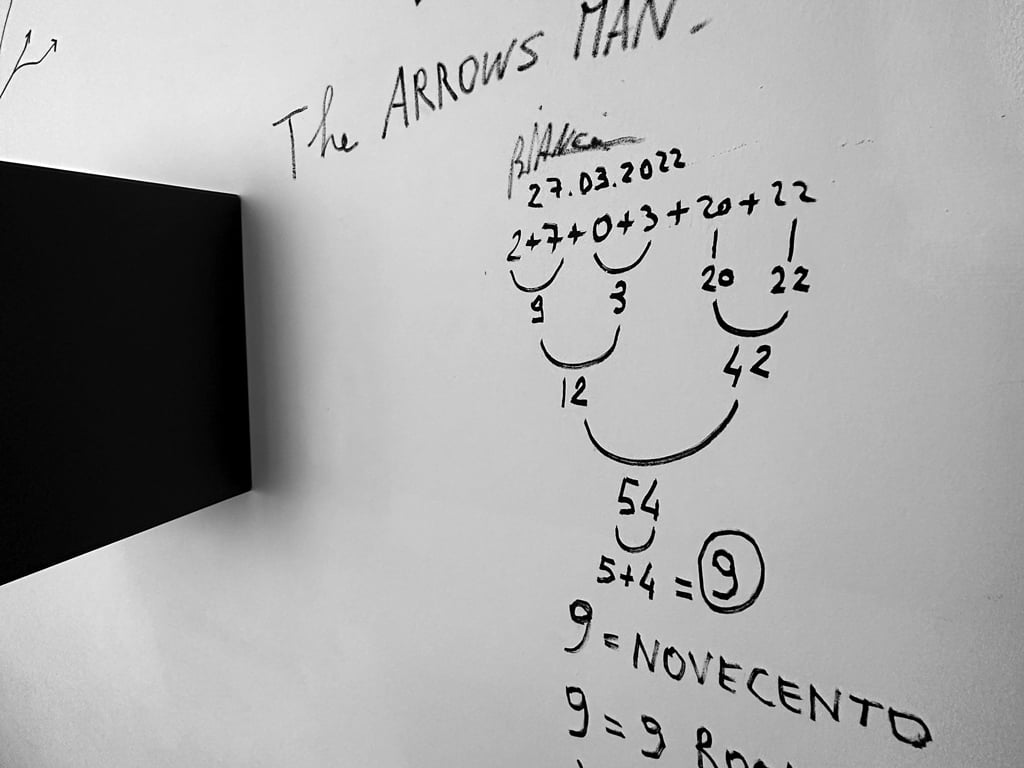 The ARROWS MAN -
BIANCA
27.03.2022
2+7+0+3+20+22
9 3 20 22
12 42
54
5+4 = 9
9 = NOVECENTO
9 = 9